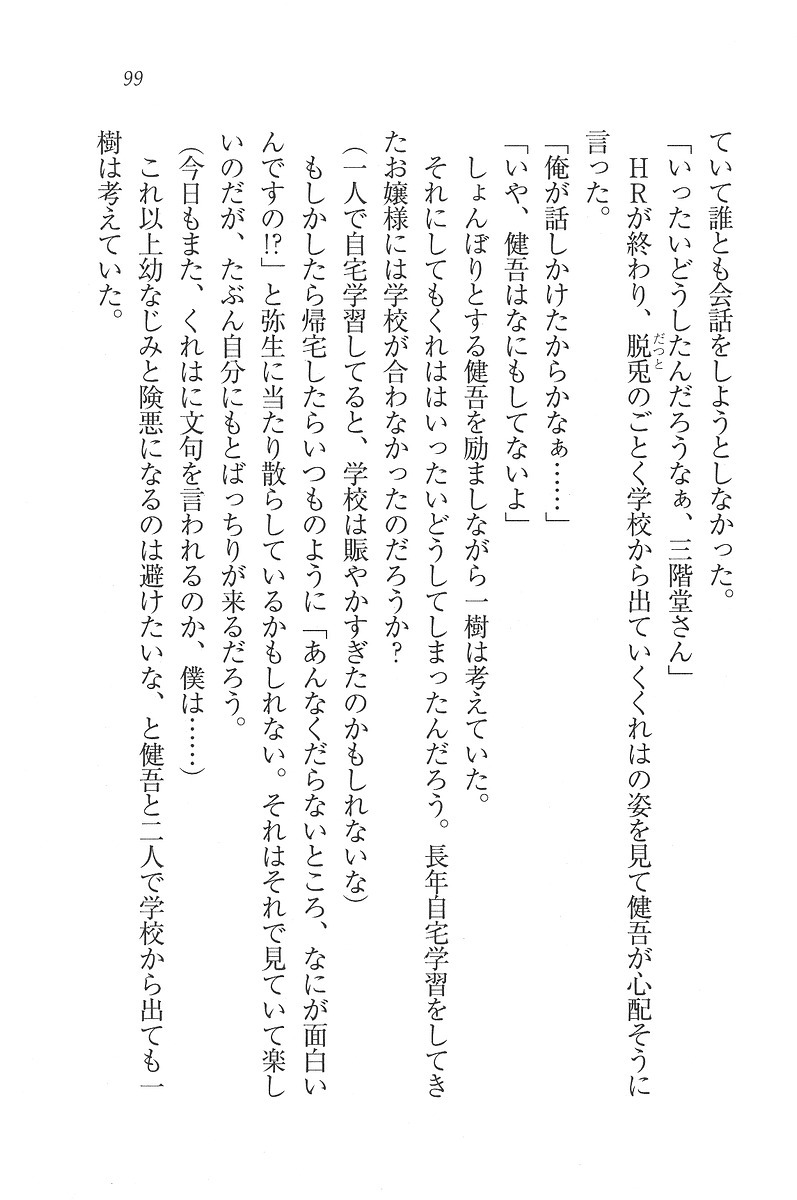 99
ていて誰とも会話をしようとしなかった。
「いったいどうしたんだろうなぁ、三階堂さん」
HRが終わり、脱兎のごとく学校から出ていくくれはの姿を見て健吾が心配そうに
だっと
言った。
「俺が話しかけたからかなぁ……」
「いや、健吾はなにもしてないよ」
しょんぼりとする健吾を励ましながら一樹は考えていた。
それにしてもくれははいったいどうしてしまったんだろう。長年自宅学習をしてき
たお嬢様には学校が合わなかったのだろうか?
(一人で自宅学習してると、学校は賑やかすぎたのかもしれないな)
もしかしたら帰宅したらいつものように「あんなくだらないところ、なにが面白い
んですの!?」と弥生に当たり散らしているかもしれない。それはそれで見ていて楽し
いのだが、たぶん自分にもとばっちりが来るだろう。
(今日もまた、くれはに文句を言われるのか、僕は……)
これ以上幼なじみと険悪になるのは避けたいな、と健吾と二人で学校から出ても一
樹は考えていた。